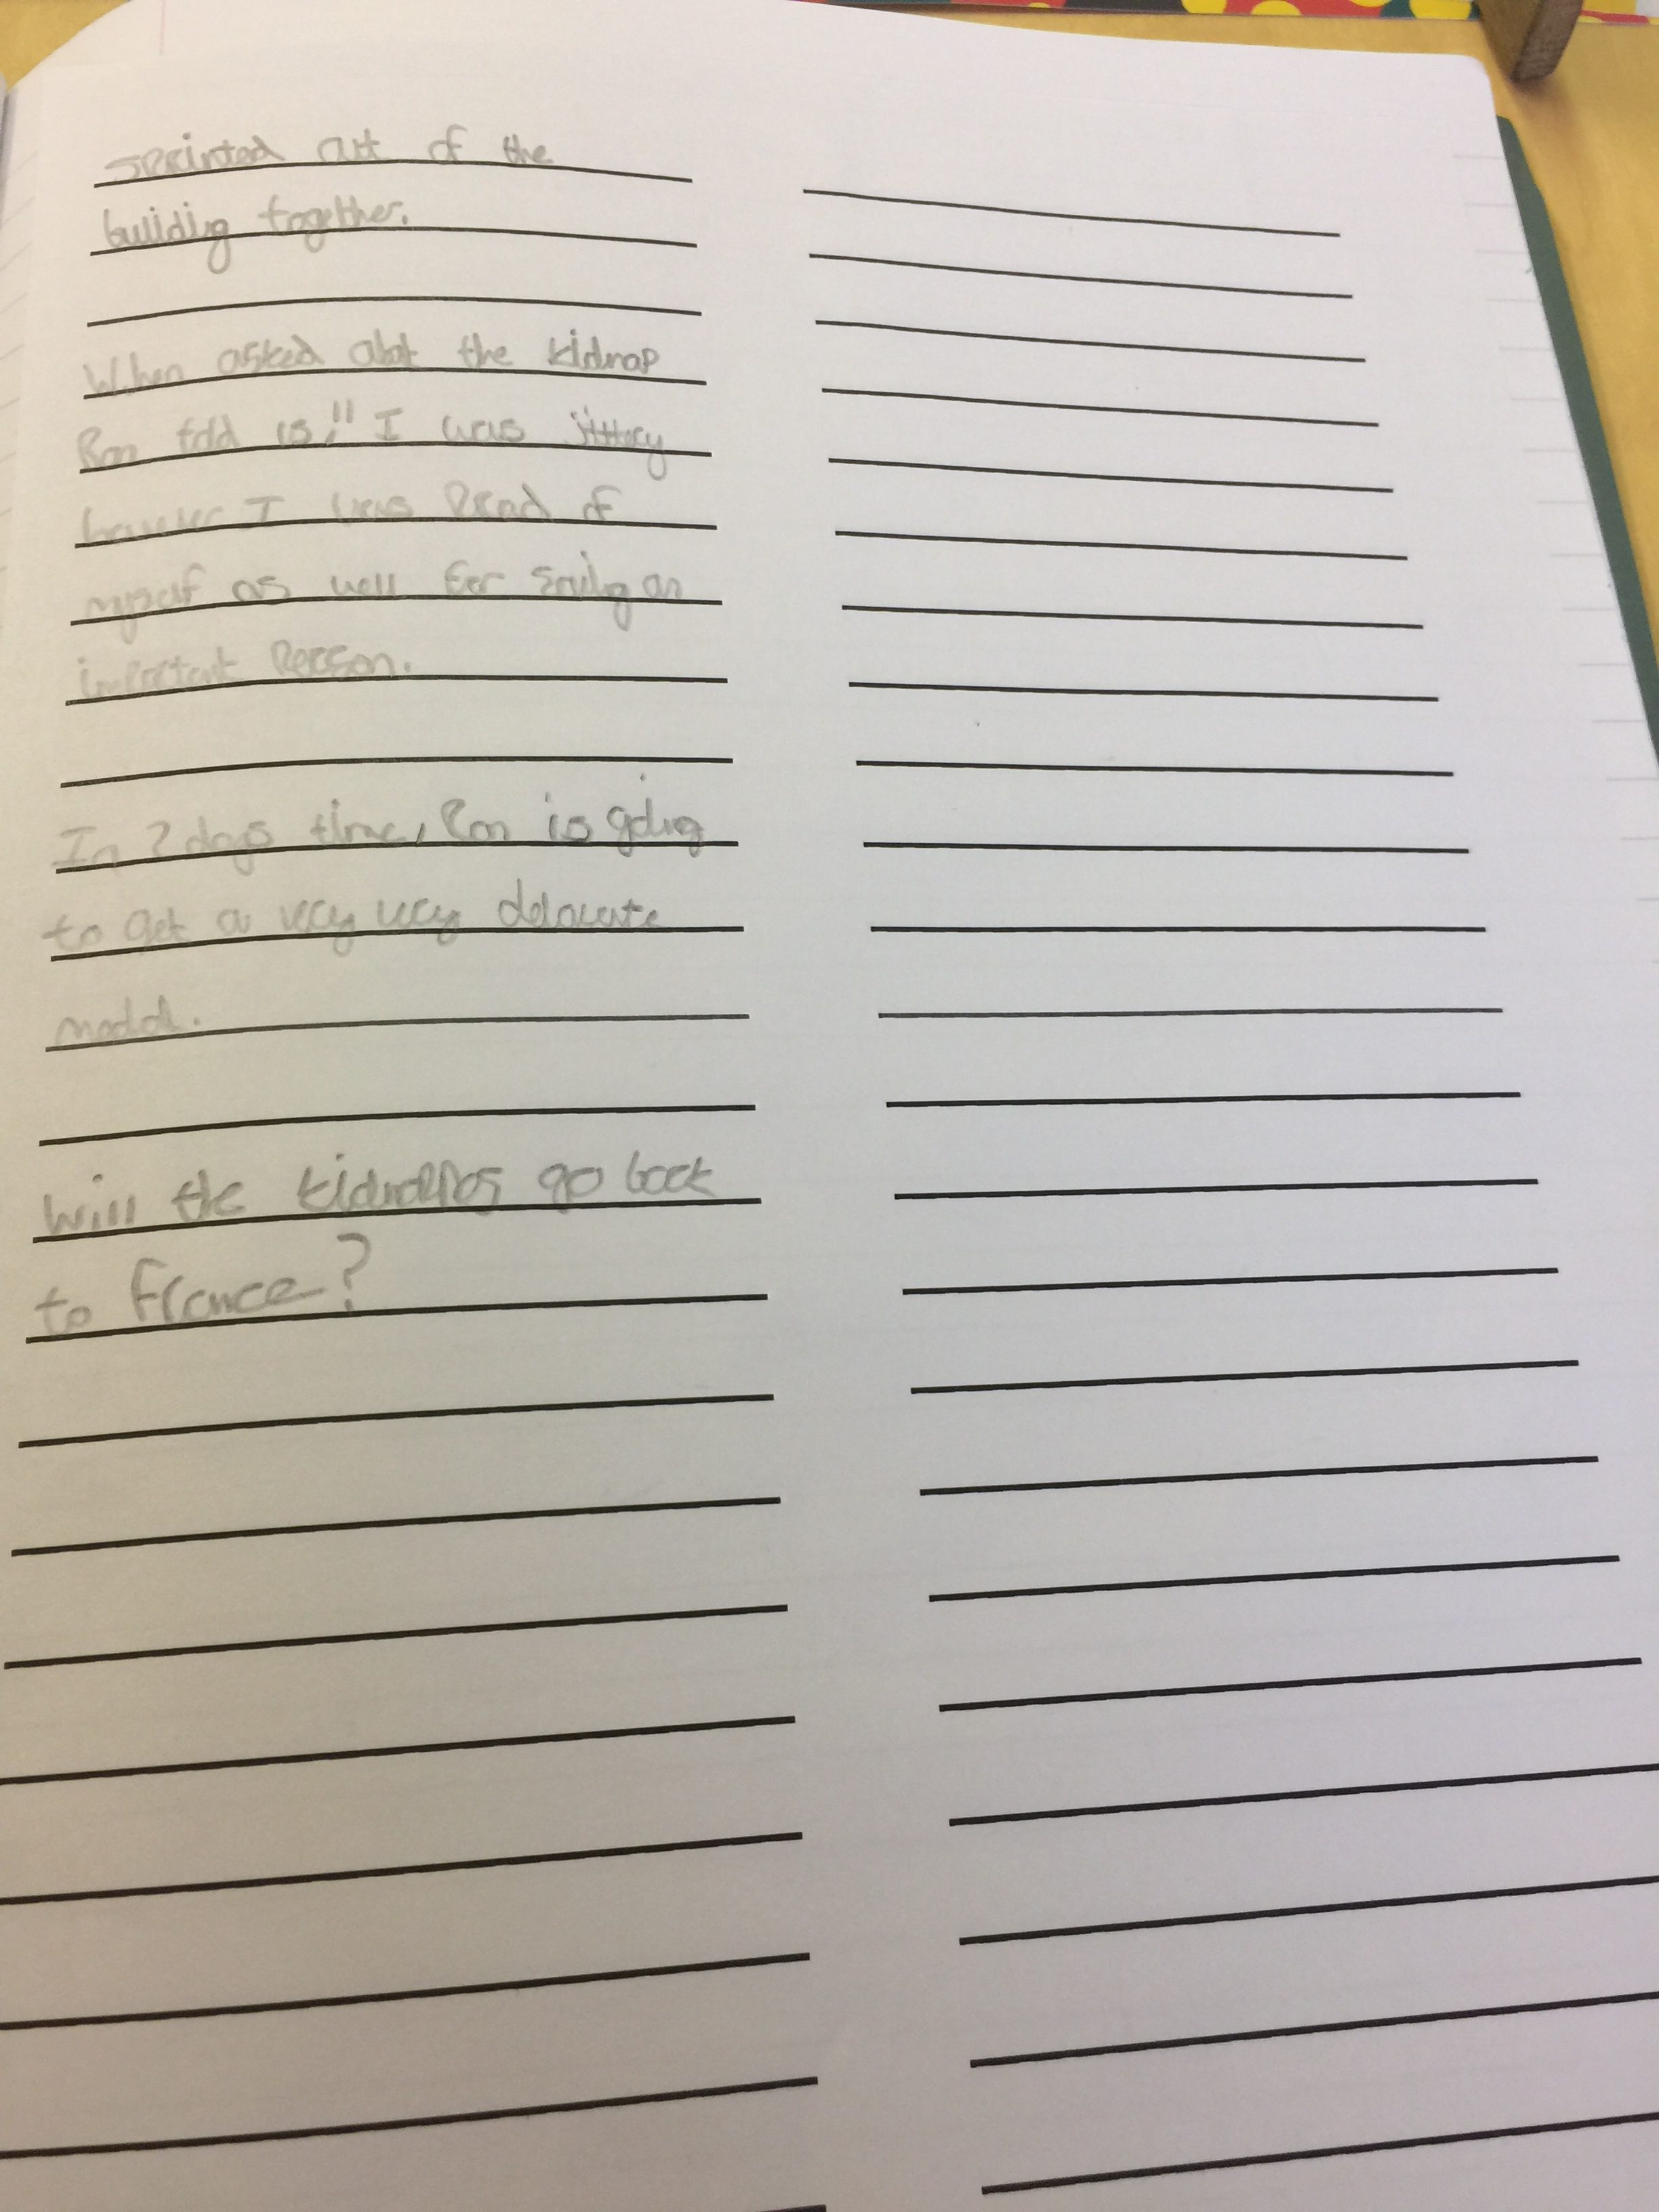 sprinted out of the
building together.
When asked abot the kidnap
Ron told us," I was jittery
however I was Proad of
myself as well for saving an
important Person.
In 2 days time, Ron is going
to get a very very delacate
medal.
Will the kidnappers go back
to France?